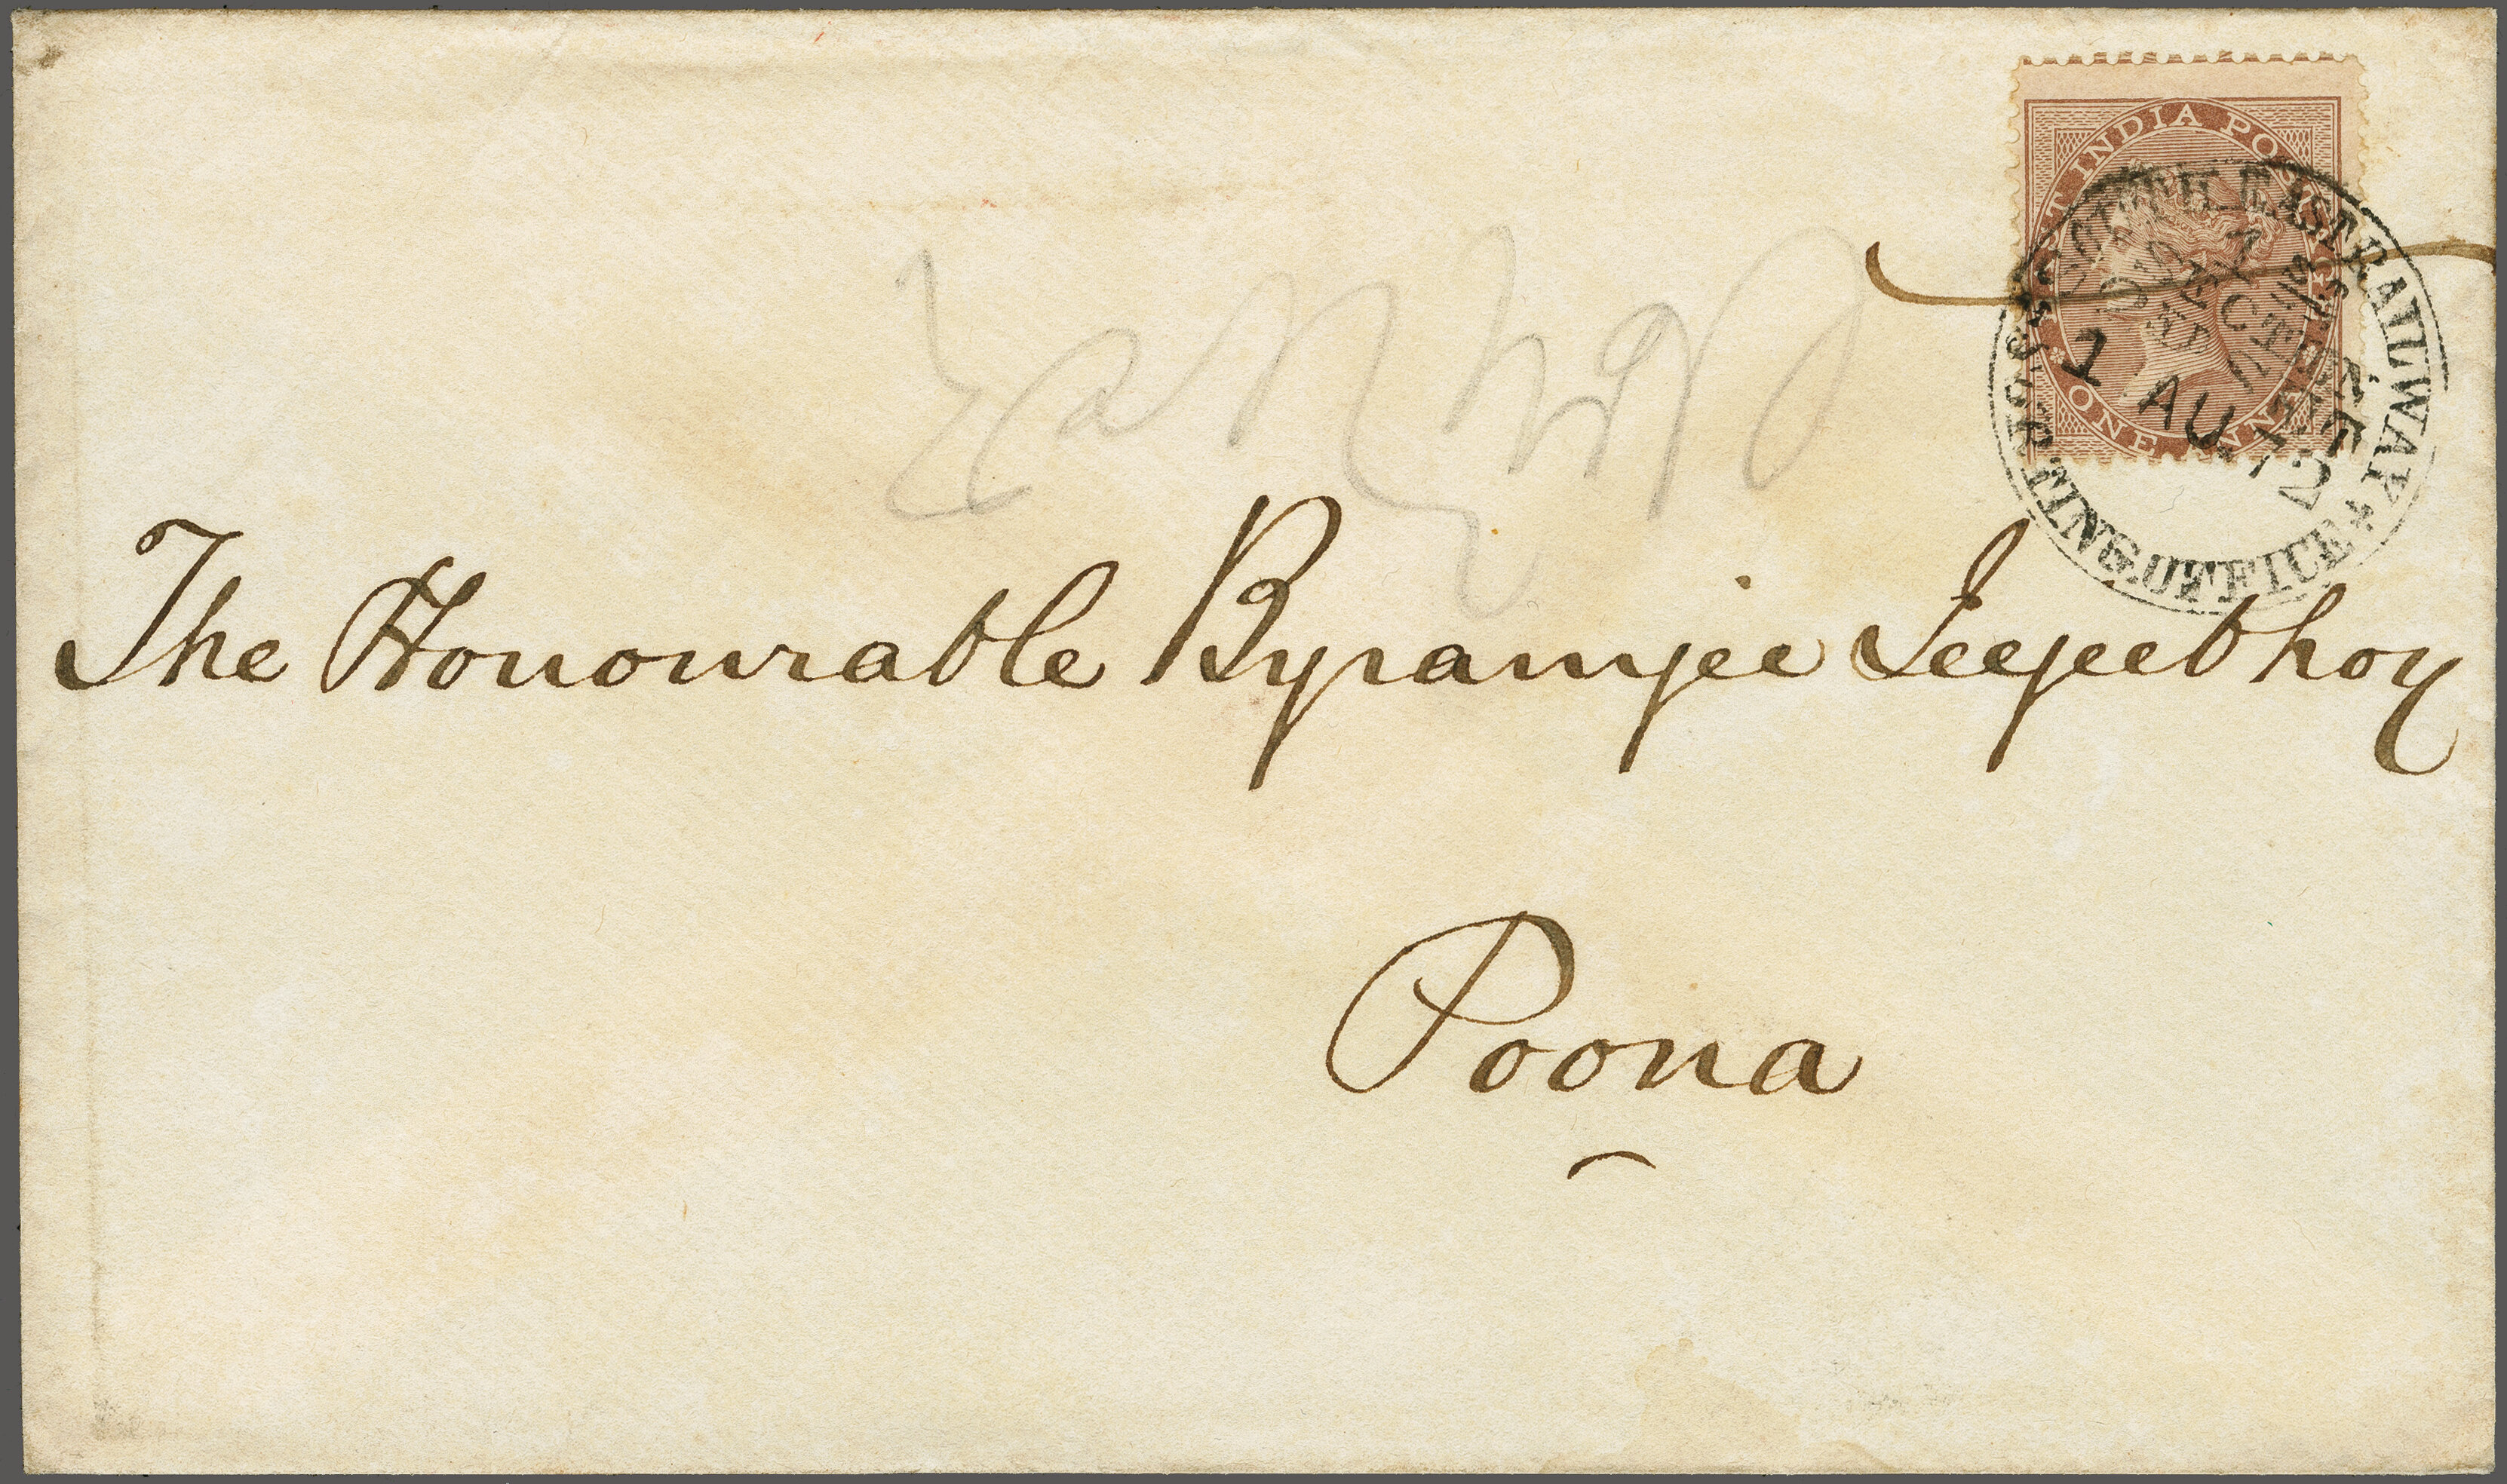 EAST INDIA POSTAGE
ONE ANNA
SOUTH EAST RAILWAY
SORTING OFFICE
1 AU 72
The Honourable Byramjee Jeejeebhoy
Poona